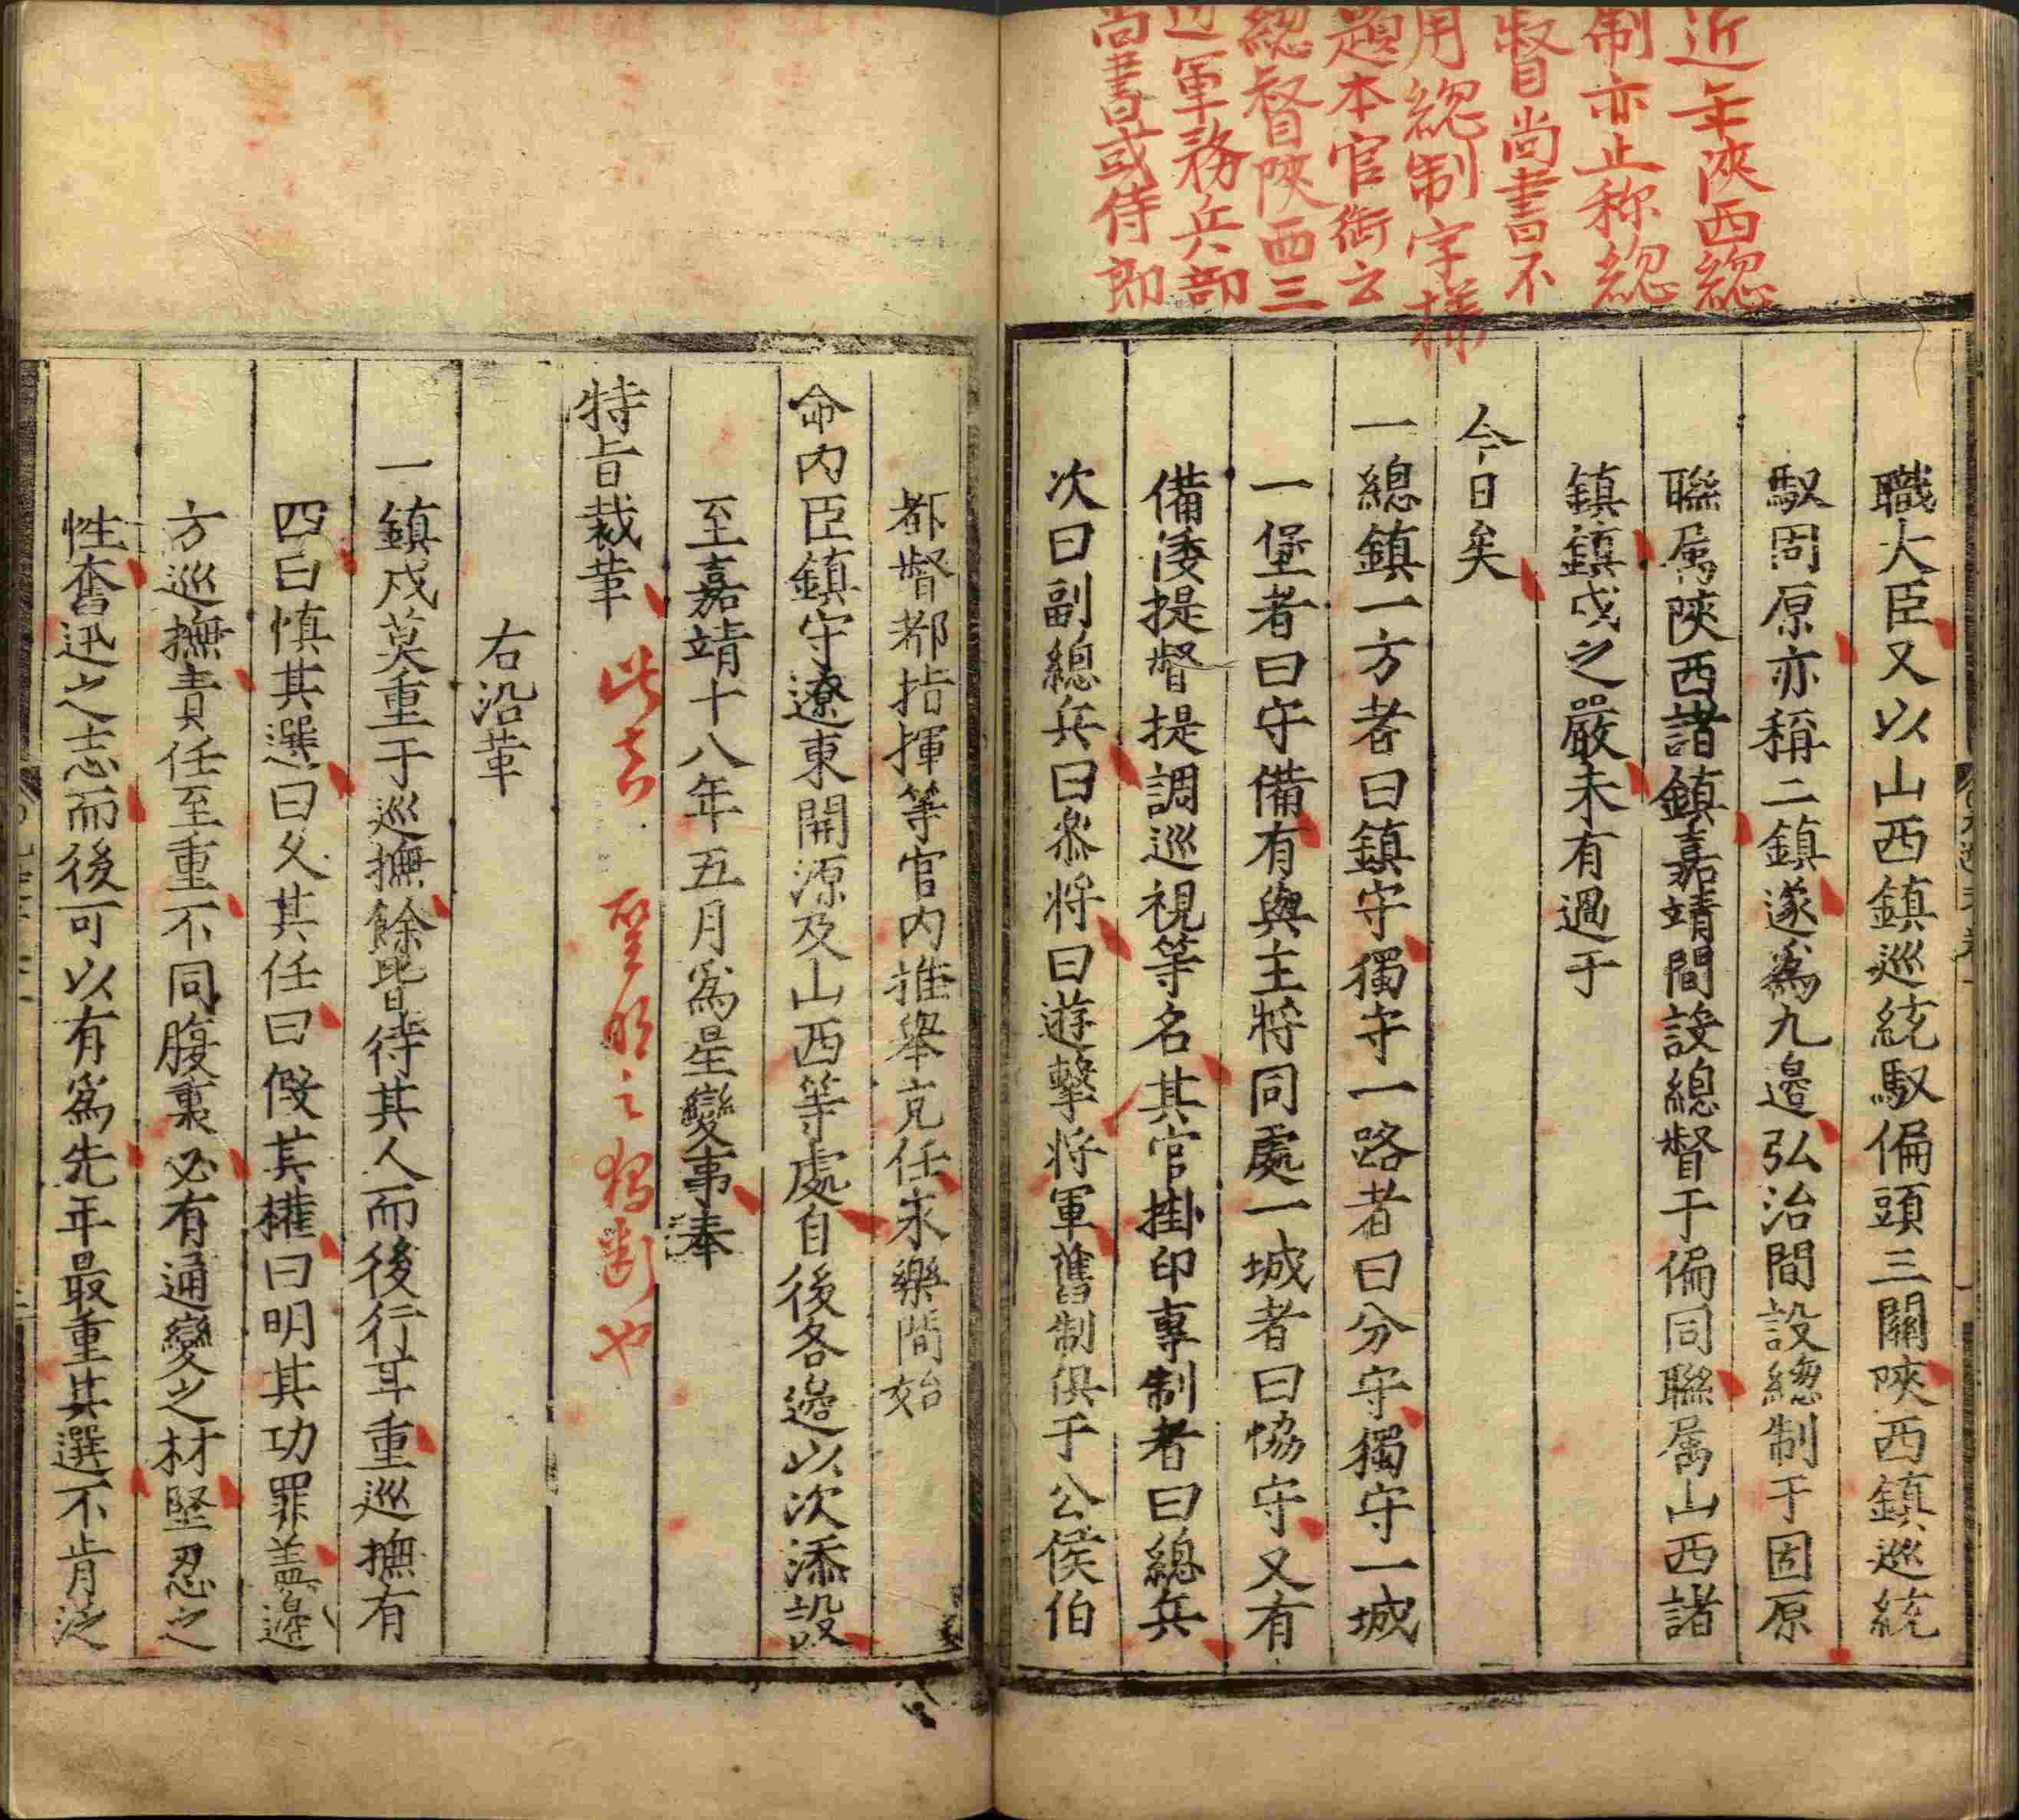 近年陜西總
制亦止称總
督尚書不
用總制字樣
題本官銜云
總督陜西三
邉軍務兵部
尚書或侍郎
職大臣又以山西鎮巡統馭偏頭三關陜西鎮巡統
馭固原亦稱二鎮遂爲九邉弘治間設總制于固原
聯属陜西諸鎮嘉靖間設總督于偏同聯属山西諸
鎮鎮戍之嚴未有過于
今日矣
一總鎮一方者曰鎮守獨守一路者曰分守獨守一城
一堡者曰守備有與主將同處一城者曰協守又有
備倭提督提調巡視等名其官掛印專制者曰總兵
次曰副總兵曰叅將曰遊擊將軍舊制俱于公侯伯
都督都指揮等官内推舉充任永樂間始
命内臣鎮守遼東開源及山西等處自後各邉以次添設
至嘉靖十八年五月爲星變事奉
特旨裁革
此真
聖明之獨斷也
右沿革
一鎮戍莫重于巡撫餘皆待其人而後行耳重巡撫有
四曰慎其選曰久其任曰假其權曰明其功罪盖邉
方巡撫責任至重不同腹裏必有通變之材堅忍之
性奮迅之志而後可以有爲先年最重其選不肯泛